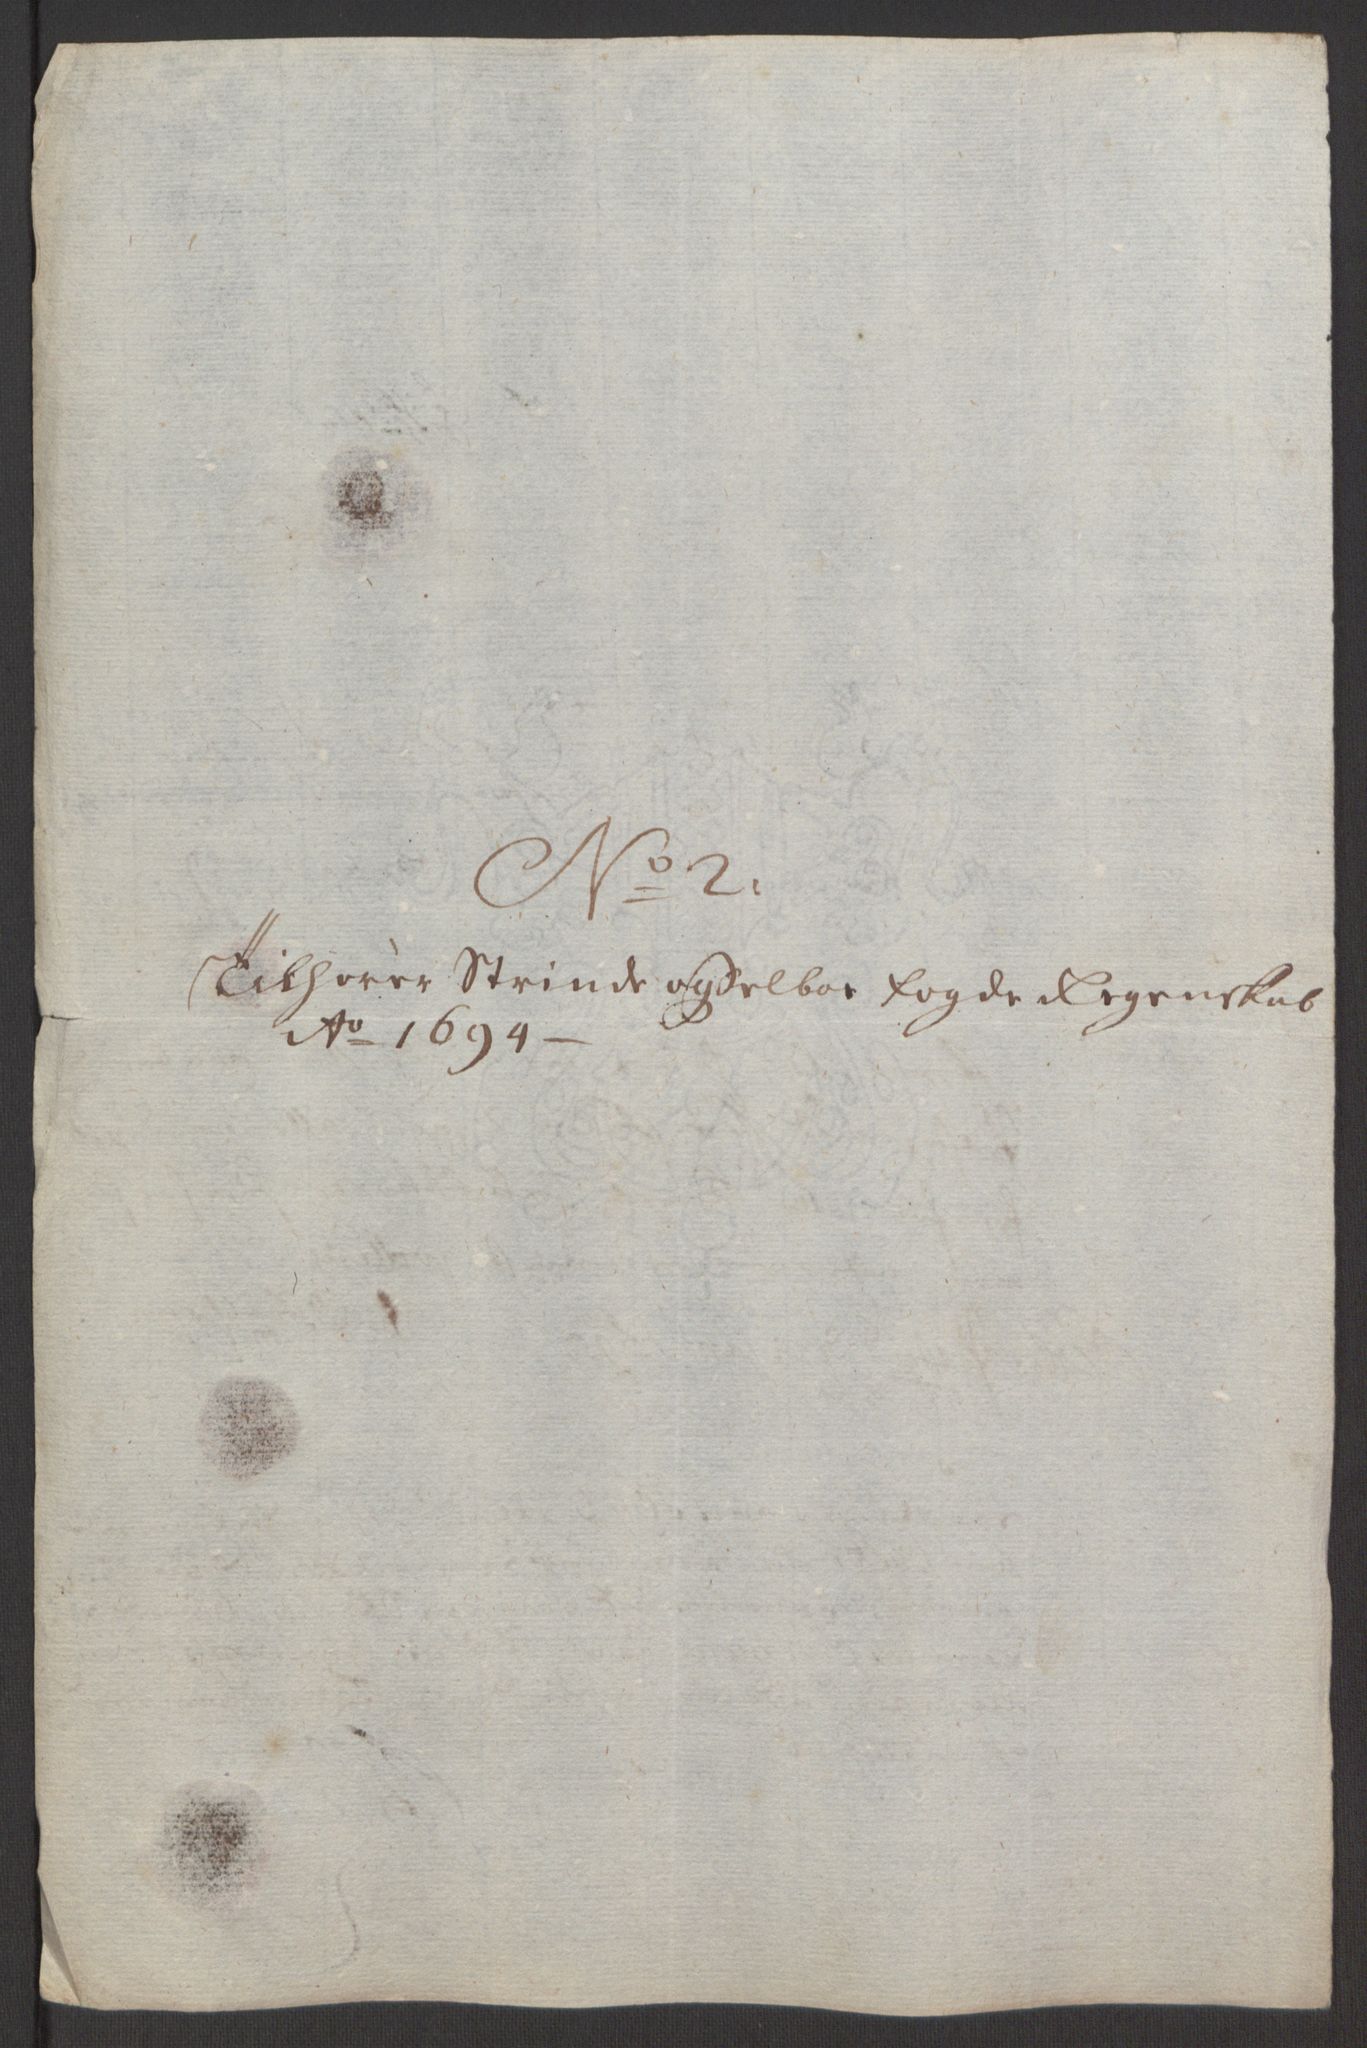 No 2.
Tilhører Strinde og Selboe fogde Regenskab
Ao 1694 —